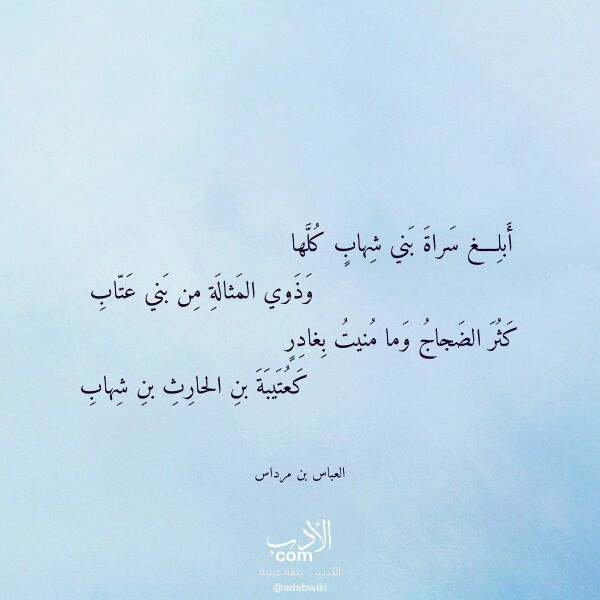 أَبلِـــغ سَراةَ بَني شِهابٍ كُلَّها
وَذَوي المَثالَةِ مِن بَني عَتّابِ
كَثُرَ الضَجاجُ وَما مُنيتُ بِغادِرٍ
كَعُتَيبَةَ بنِ الحارِثِ بنِ شِهابِ
العباس بن مرداس
الأدب
com
الأدب .. بلغة عربية
@adabwiki